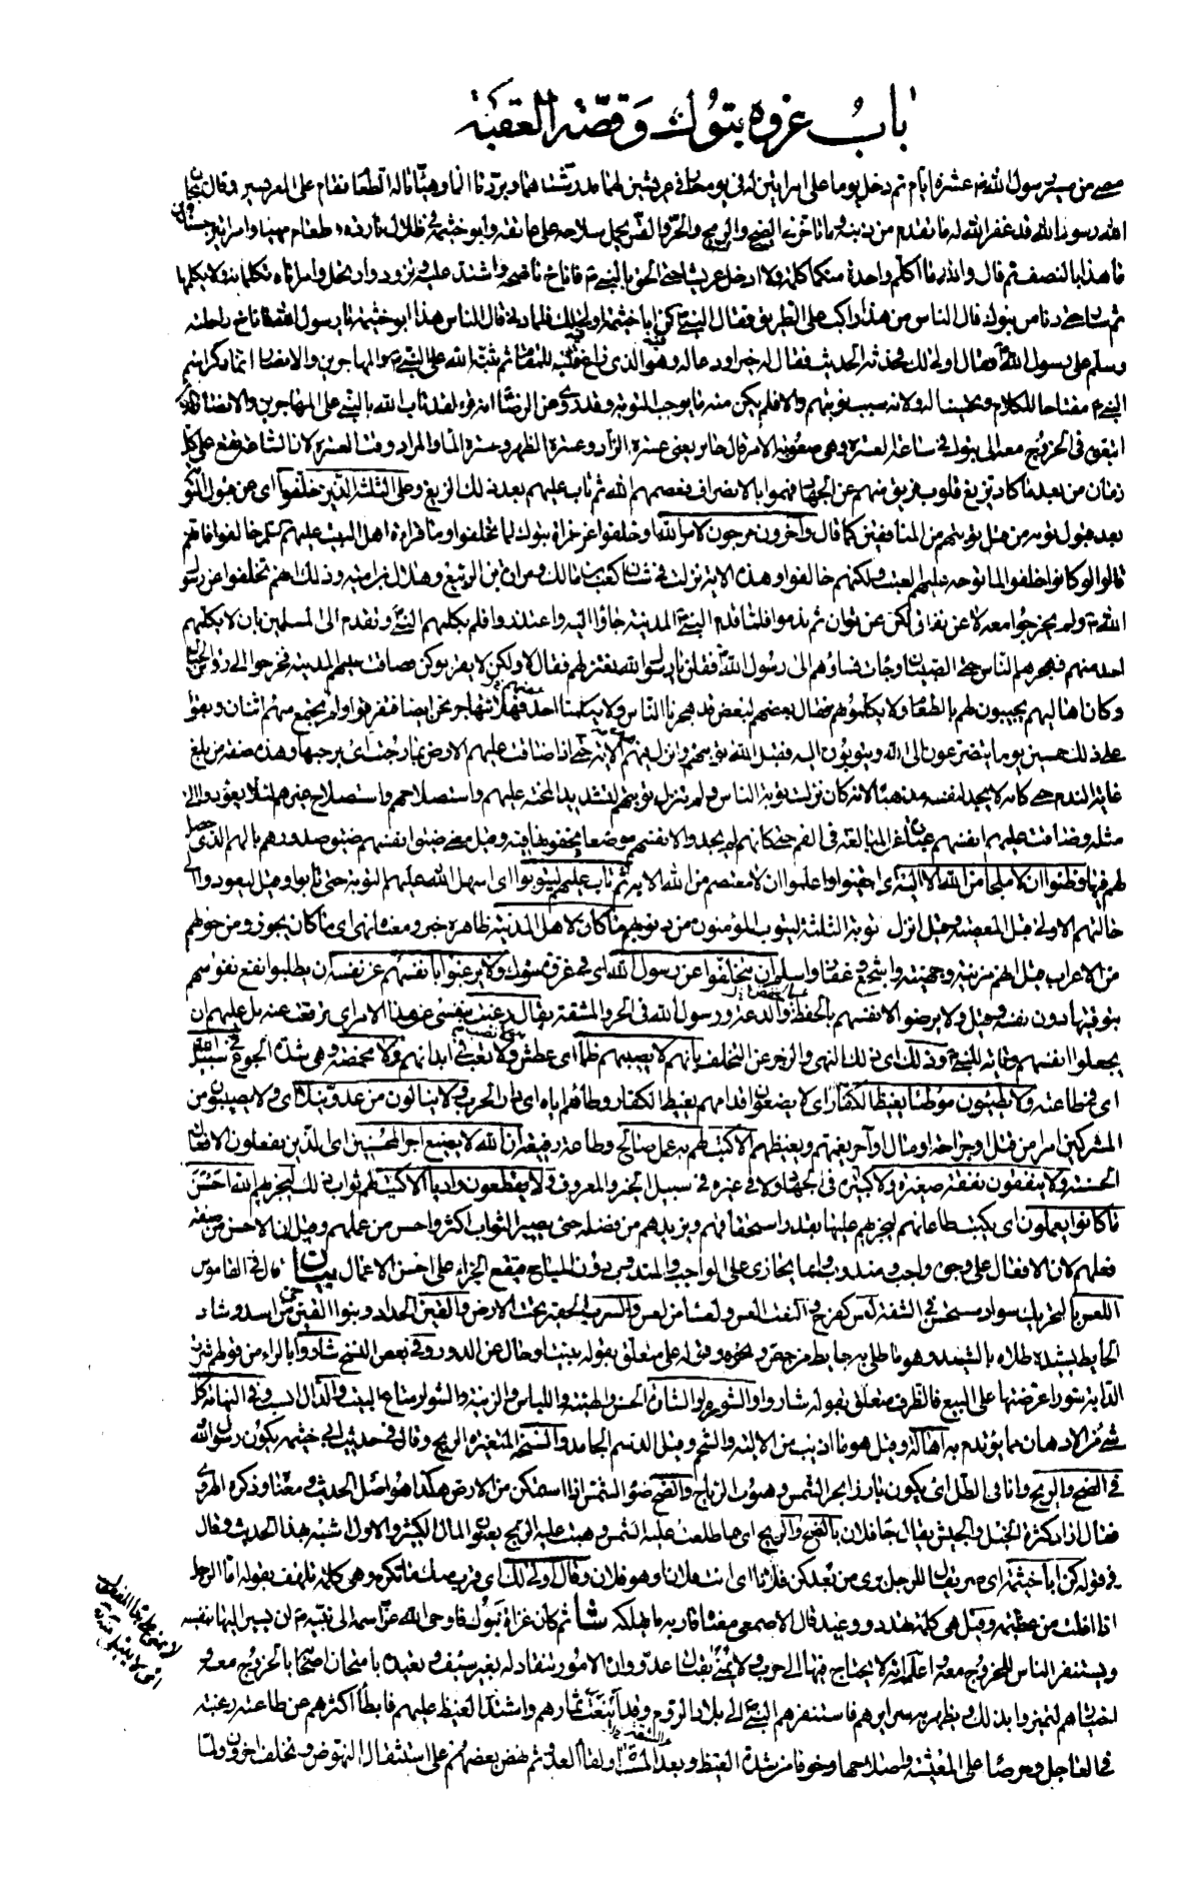 باب غزوة تبوك وقصة العقبة
مضى من مسير رسول الله ص عشرة ايام ثم دخل يوما على امراتين له في يوم حار في عريشين لهما قد رشتاهما وبردتا الماء وهيئتا له الطعام فقام على العريشين وقال سبحان
الله رسول الله قد غفر الله له ما تقدم من ذنبه وما تاخر في الضح والريح والحر والقر يحمل سلاحه على عاتقه وابو خثيمة في ظلال باردة وطعام مهيا وامراتين حسناوين
ما هذا بالنصف ثم قال والله لا اكلم واحدة منكما كلمة ولا ادخل عريشا حتى الحق بالنبي ص فاناخ ناضحه واشتد عليه وتزود وارتحل وامراتاه تكلمانه ولا يكلمهما
ثم سار حتى دنا من تبوك قال الناس هذا راكب على الطريق فقال النبي ص كن ابا خثيمة اولى لك فلما دنى قال الناس هذا ابو خثيمة يا رسول الله فاناخ راحلته
وسلم على رسول الله ص فقال اولى لك فحدثه الحديث فقال له خيرا ودعا له وهو الذي زاغ قلبه للمقام ثم ثبته الله على النبي ص والمهاجرين والانصار انما ذكر اسم
النبي ص مفتاحا للكلام وتحسينا له ولانه سبب توبتهم والا فلم يكن منه ما يوجب التوبة وقد روي عن الرضا انه قرء لقد تاب الله بالنبي على المهاجرين والانصار الذين
اتبعوه في الخروج معه الى تبوك في ساعة العسرة وهي صعوبة الامر قال جابر يعني عسرة الزاد وعسرة الظهر وعسرة الماء والمراد وقت العسرة لان الساعة تقع على كل
زمان من بعد ما كاد تزيغ قلوب فريق منهم عن الجهاد فهموا بالانصراف فعصمهم الله ثم تاب عليهم بعد ذلك الزيغ وعلى الثلثة الذين خلفوا اي عن قبول التوبة
بعد قبول توبة من قبل توبتهم من المنافقين كما قال وآخرون مرجون لامر الله او خلفوا عن غزاة تبوك لما تخلفوا وما قراءة اهل البيت عليهم السلم خالفوا فانهم
قالوا لو كانوا خلفوا لما توجه عليهم العتب ولكنهم خالفوا وهذه الاية نزلت في شان كعب بن مالك ومرارة بن الربيع وهلال بن امية وذلك انهم تخلفوا عن رسول
الله ص ولم يخرجوا معه لا عن نفاق لكن عن توان ثم ندموا فلما قدم النبي ص المدينة جاؤا اليه واعتذروا فلم يكلمهم النبي ص وتقدم الى المسلمين بان لا يكلمهم
احد منهم فهجرهم الناس حتى الصبيان وجاءت نساؤهم الى رسول الله ص فقلن يا رسول الله نعتزلهم فقال لا ولكن لا يقربوكن فضاقت عليهم المدينة فخرجوا الى رؤس الجبال
وكان اهاليهم يجيئون لهم بالطعام ولا يكلمونهم فقال بعضهم لبعض قد هجرنا الناس ولا يكلمنا احد فهلا نتهاجر نحن ايضا فتفرقوا ولم يجتمع منهم اثنان وبقوا
على ذلك خمسين يوما يتضرعون الى الله ويتوبون اليه فقبل الله توبتهم وانزل فيهم الاية حتى اذا ضاقت عليهم الارض بما رحبت اي برحبها وهذه صفة من بلغ
غاية الندم حتى كانه لا يجد لنفسه مذهبا لانه كان نزلت توبة الناس ولم تنزل توبتهم لتشديد المحنة عليهم واستصلاحهم واستصلاح غيرهم لئلا يعودوا الى
مثله وضاقت عليهم انفسهم عبارة عن المبالغة في الغم حتى كانهم لم يجدوا لانفسهم موضعا يخفونها فيه وقيل معنى ضيق انفسهم ضيق صدورهم بالهم الذي حصل
لهم فيها وظنوا ان لا ملجا من الله الا اليه اي ايقنوا وعلموا ان لا معتصم من الله الا به ثم تاب عليهم ليتوبوا اي سهل الله عليهم التوبة حتى تابوا وقيل ليعودوا الى
حالتهم الاولى قبل المعصية وقيل انزل توبة الثلثة ليتوب المؤمنون من ذنوبهم ما كان لاهل المدينة ظاهره خبر ومعناه نهي اي ما كان يجوز ومن حولهم
من الاعراب قيل انهم مزينة وجهينة واشجع وغفار واسلم ان يتخلفوا عن رسول الله اي في غزوة تبوك ولا يرغبوا بانفسهم عن نفسه ان يطلبوا نفع نفوسهم
بتوقيتها دون نفسه وقيل ولا يرضوا لانفسهم بالخفض والدعة ورسول الله في الحر والمشقة يقال رغبت بنفسي عن هذا الامر اي ترفعت عنه بل عليهم ان
يجعلوا انفسهم وقاية للنبي ص وذلك اي ذلك النهي والزجر عن التخلف بانهم لا يصيبهم ظما اي عطش ولا تعب في ابدانهم ولا مخمصة وهي شدة الجوع في سبيل الله
اي في طاعته ولا يطئون موطئا يغيظ الكفار اي لا يضعون اقدامهم يغيظ الكفار وطئهم اياه اي دار الحرب ولا ينالون من عدو نيلا اي ولا يصيبون من
المشركين امرا من قتل او جراحة او مال او امر يغمهم ويغيظهم الا كتب لهم به عمل صالح وطاعة رفيعة ان الله لا يضيع اجر المحسنين اي الذين يفعلون الافعال
الحسنة ولا ينفقون نفقة صغيرة ولا كبيرة في الجهاد ولا في غيره في سبيل الخير والمعروف ولا يقطعون واديا الا كتب لهم ثواب ذلك ليجزيهم الله احسن
ما كانوا يعملون اي يكتب طاعاتهم ليجزيهم عليها بقدر استحقاقهم ويزيدهم من فضله حتى يصير الثواب اكثر واحسن من عملهم وقيل ان الاحسن من صفة
فعلهم لان الافعال على وجوه واجب ومندوب وانما يجازى على الواجب والمندوب دون المباح فيقع الجزاء على احسن الاعمال بيان قال في القاموس
اللعس بالتحريك سواد مستحسن في الشفة لعس كفرح والنعت العس ولعساء من لعس والسرب الحفير تحت الارض والقين الحداد وبنو القين حي من اسد وشاد
الحائط يشيده طلاه بالشيد وهو ما طلي به حائط من جص ونحوه
شيء من الادهان مما يؤتدم به اهالة وقيل هو ما اذيب من الالية والشحم وقيل الدسم الجامد والسنخة المتغيرة الريح وقال في حديث ابي خثيمة يكون رسول الله
في الضح والريح وانا في الظل اي يكون بارزا لحر الشمس وهبوب الرياح والضح ضوء الشمس اذا استمكن من الارض هكذا هو اصل الحديث ومعناه وذكره الهروي
فقال اراد كثرة الخيل والجيش يقال جاء فلان بالضح والريح اي بما طلعت عليه الشمس وهبت عليه الريح يعنون المال الكثير والاول اشبه بهذا الحديث وقال
في قوله كن ابا خثيمة اي صر يقال للرجل يرى من بعد كن فلانا اي انت فلان او هو فلان وقال اولى لك اي قرب منك ما تكره وهي كلمة تلهف يقولها الرجل
اذا افلت من عظيمة وقيل هي كلمة تهدد ووعيد قال الاصمعي معناه قاربه ما يهلكه شا ثم كان غزاة تبوك فاوحى الله عز اسمه الى نبيه ص ان يسير اليها بنفسه
ويستنفر الناس للخروج معه واعلمه انه لا يحتاج فيها الى حرب ولا يمنى بقتال عدو وان الامور تنقاد له بغير سيف وتعبده بامتحان اصحابه بالخروج معه و
اختبارهم ليتميزوا بذلك ويظهر به سرايرهم فاستنفرهم النبي ص الى بلاد الروم وقد اينعت ثمارهم واشتد القيظ عليهم فابطأ اكثرهم عن طاعته رغبة
في العاجل وحرصا على المعيشة واصلاحها وخوفا من شدة القيظ وبعد المسافة ولقاء العدو ثم نهض بعضهم على استثقال للنهوض وتخلف اخرون ولما